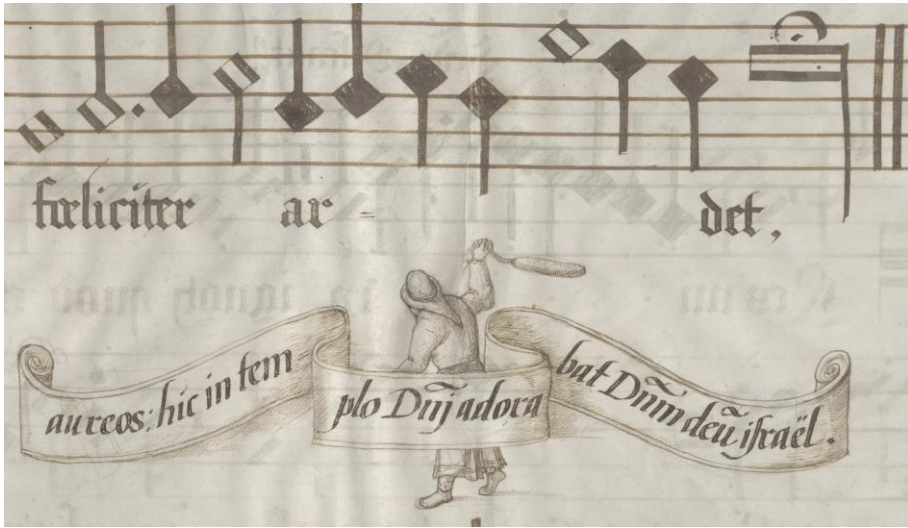 fœliciter ar= det,
aureos: hic in tem plo Dn̄j adora bat Dn̄m deū israël.